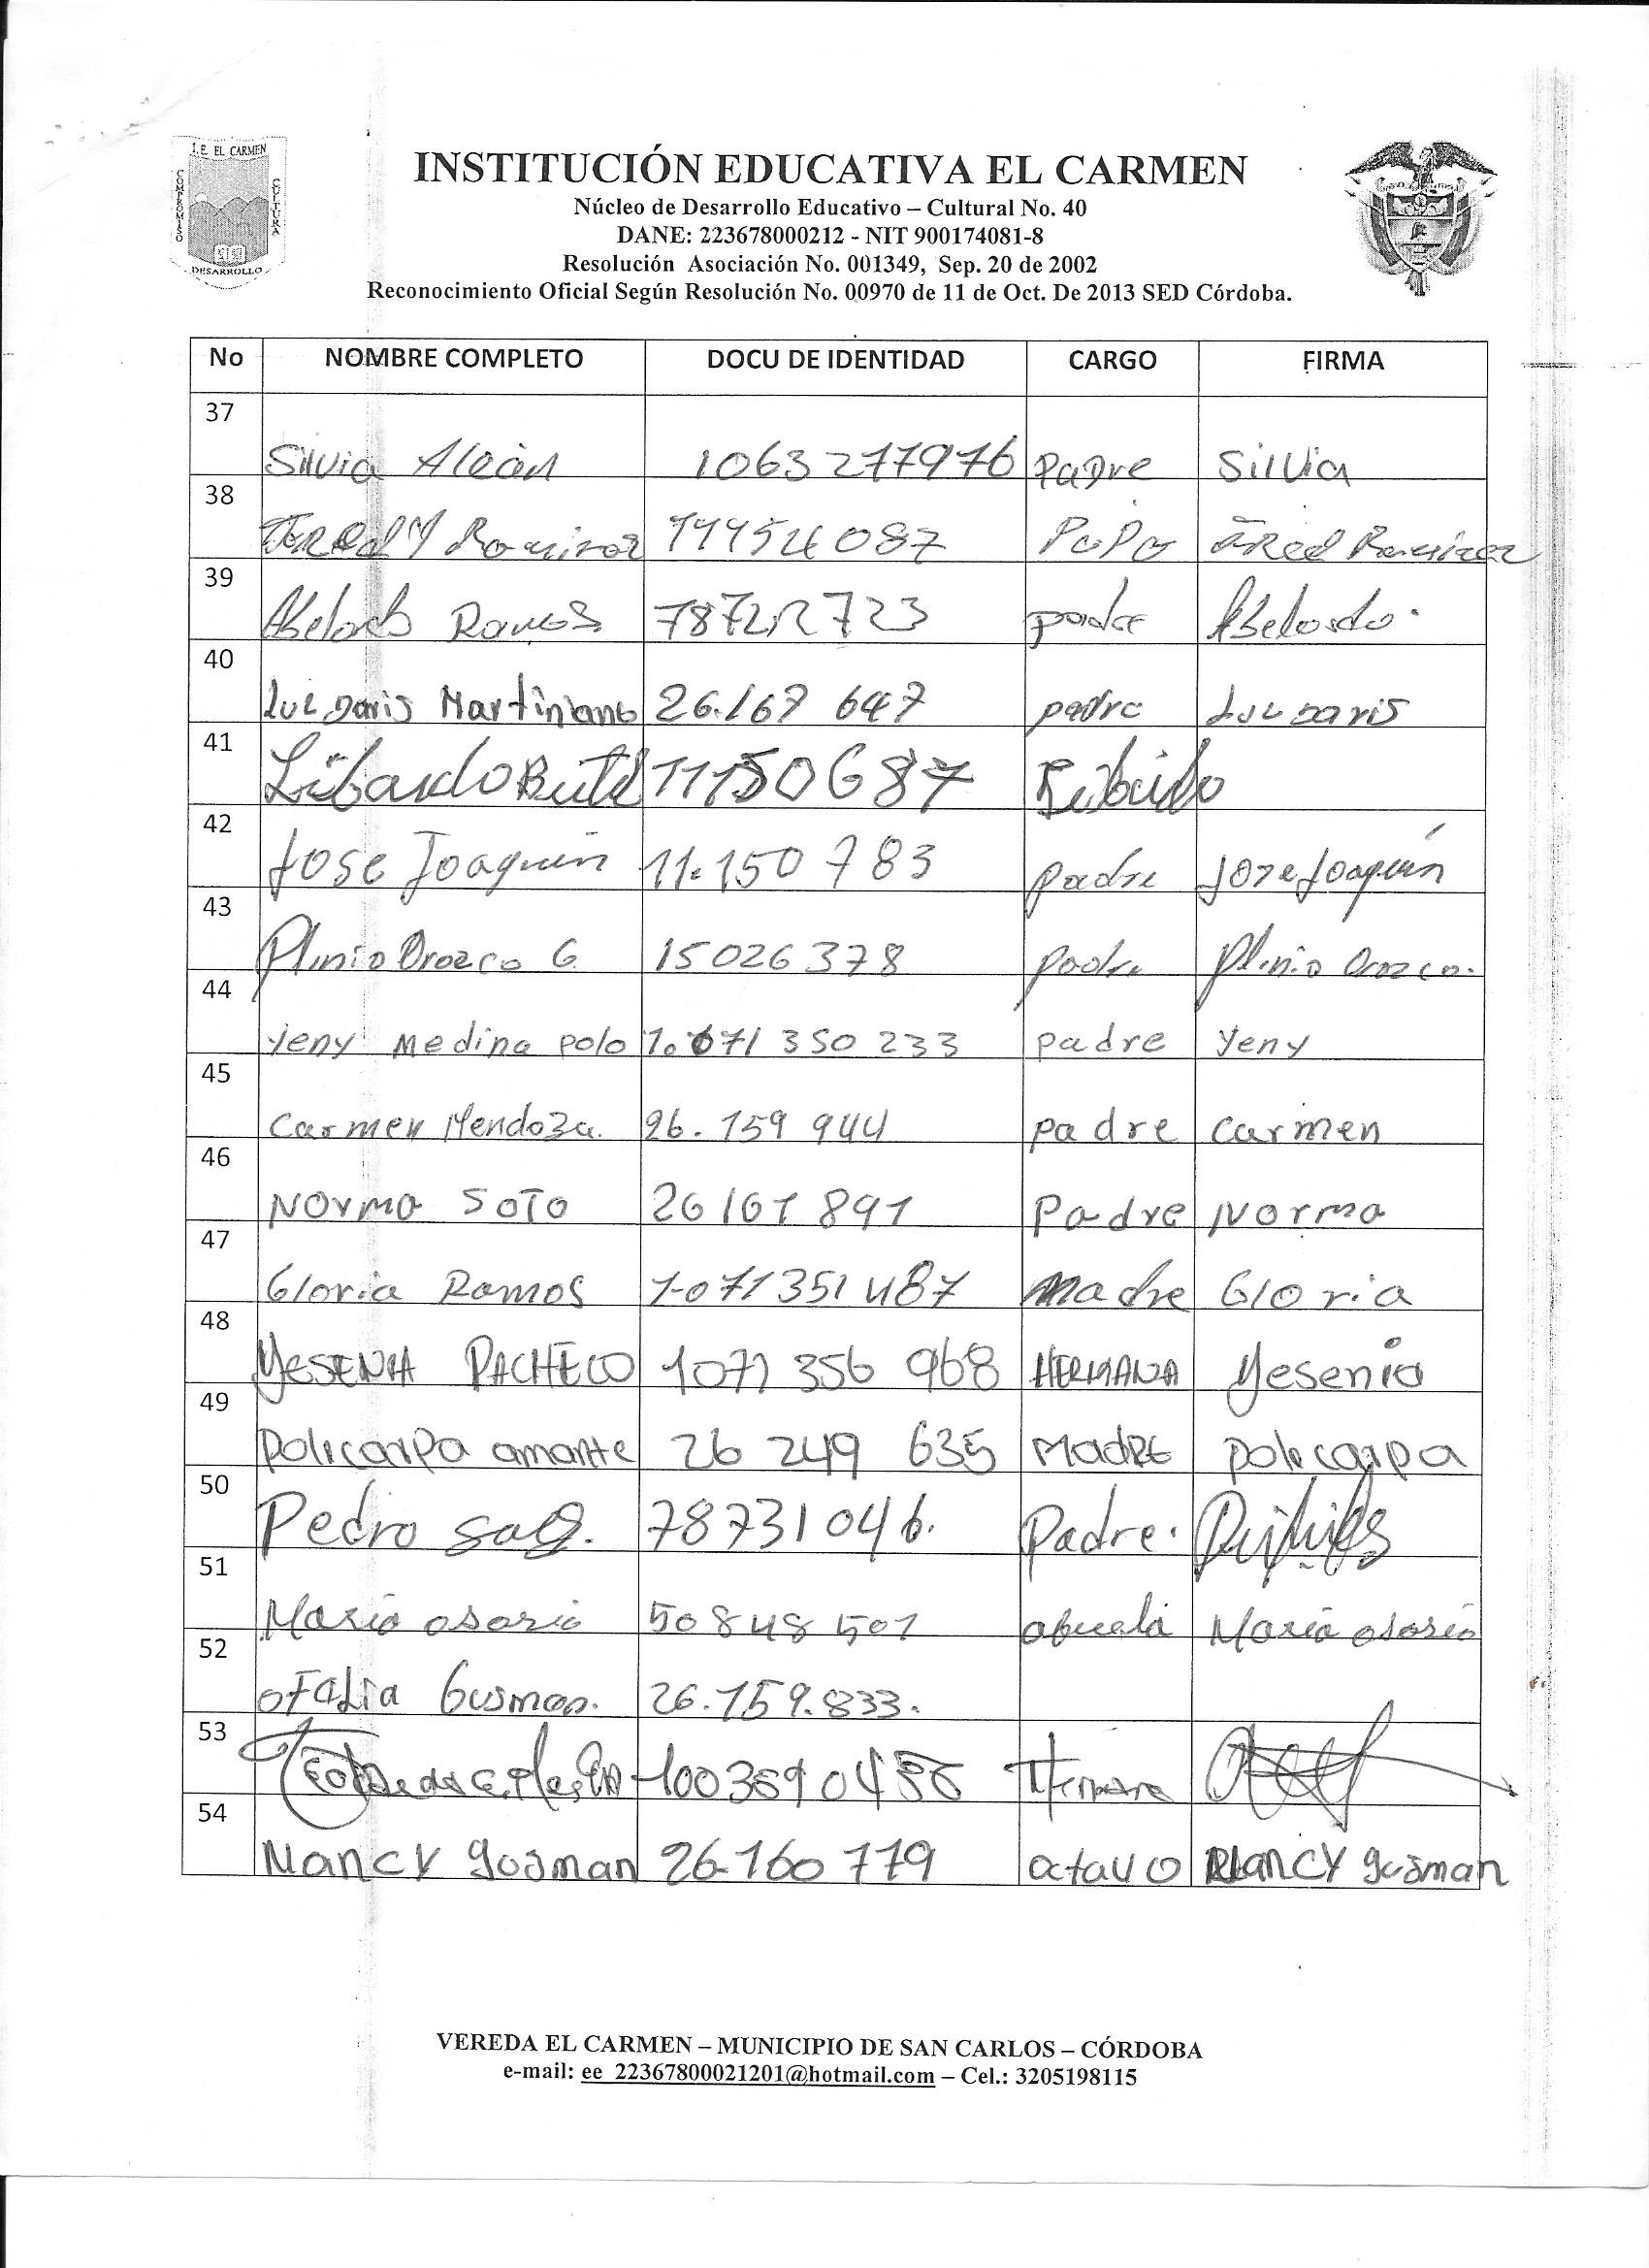 I.E. EL CARMEN
COMPROMISO
CULTURA
DESARROLLO
INSTITUCIÓN EDUCATIVA EL CARMEN
Núcleo de Desarrollo Educativo – Cultural No. 40
DANE: 223678000212 - NIT 900174081-8
Resolución Asociación No. 001349, Sep. 20 de 2002
Reconocimiento Oficial Según Resolución No. 00970 de 11 de Oct. De 2013 SED Córdoba.
No NOMBRE COMPLETO DOCU DE IDENTIDAD CARGO FIRMA
37 Silvia 1063277976 Padre Silvia
38 11954087 PaPa
39 Ramos padre Abelardo.
40 Luz Daris 26.167 647 padre Luz Daris
41 Libardo 11150687
42 Jose Joaquin 11.150 783 padre Jose Joaquin
43 Plinio Orozco G. 15026378 padre Plinio Orozco.
44 Yeny Medina polo 1.071 350 233 padre Yeny
45 Carmen Mendoza. 26.159 944 padre Carmen
46 Norma Soto 26161891 Padre Norma
47 Gloria Ramos 1.071351487 Madre Gloria
48 YESENIA PACHECO 1071 356 968 HERMANA Yesenia
49 policarpa amante 26 249 635 MadRE policarpa
50 Pedro 78731046. Padre.
51 Maria osorio 50848501 abuela Maria osorio
52 OFALIA Gusman. 26.159.833.
53
54 Nancy gusman 26.160 779 octavo Nancy gusman
VEREDA EL CARMEN – MUNICIPIO DE SAN CARLOS – CÓRDOBA
e-mail: ee_22367800021201@hotmail.com – Cel.: 3205198115